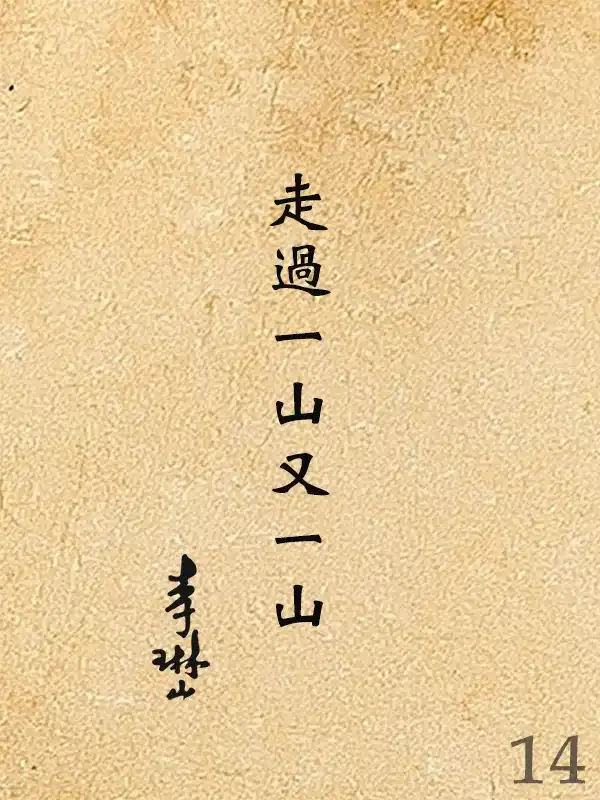 走過一山又一山
李琳山
14